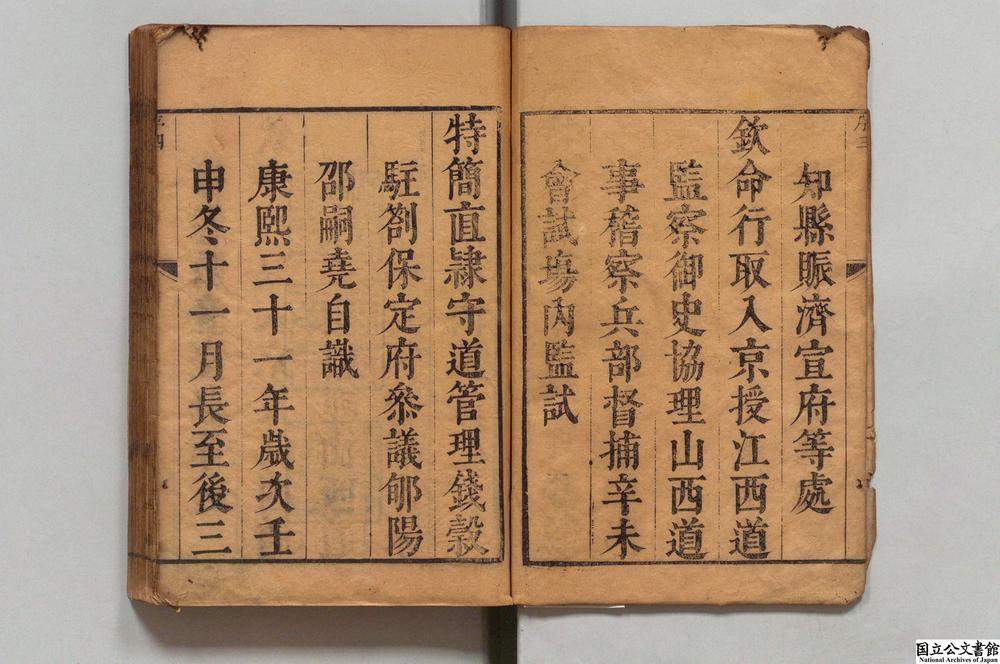 知縣賑濟宣府等處
欽命行取入京授江西道
監察御史協理山西道
事稽察兵部督捕辛未
會試場內監試
序三
特簡直隸守道管理錢穀
駐劄保定府叅議郇陽
邵嗣堯自識
康熙三十一年歲次壬
申冬十一月長至後三
序四
国立公文書館
National Archives of Japan